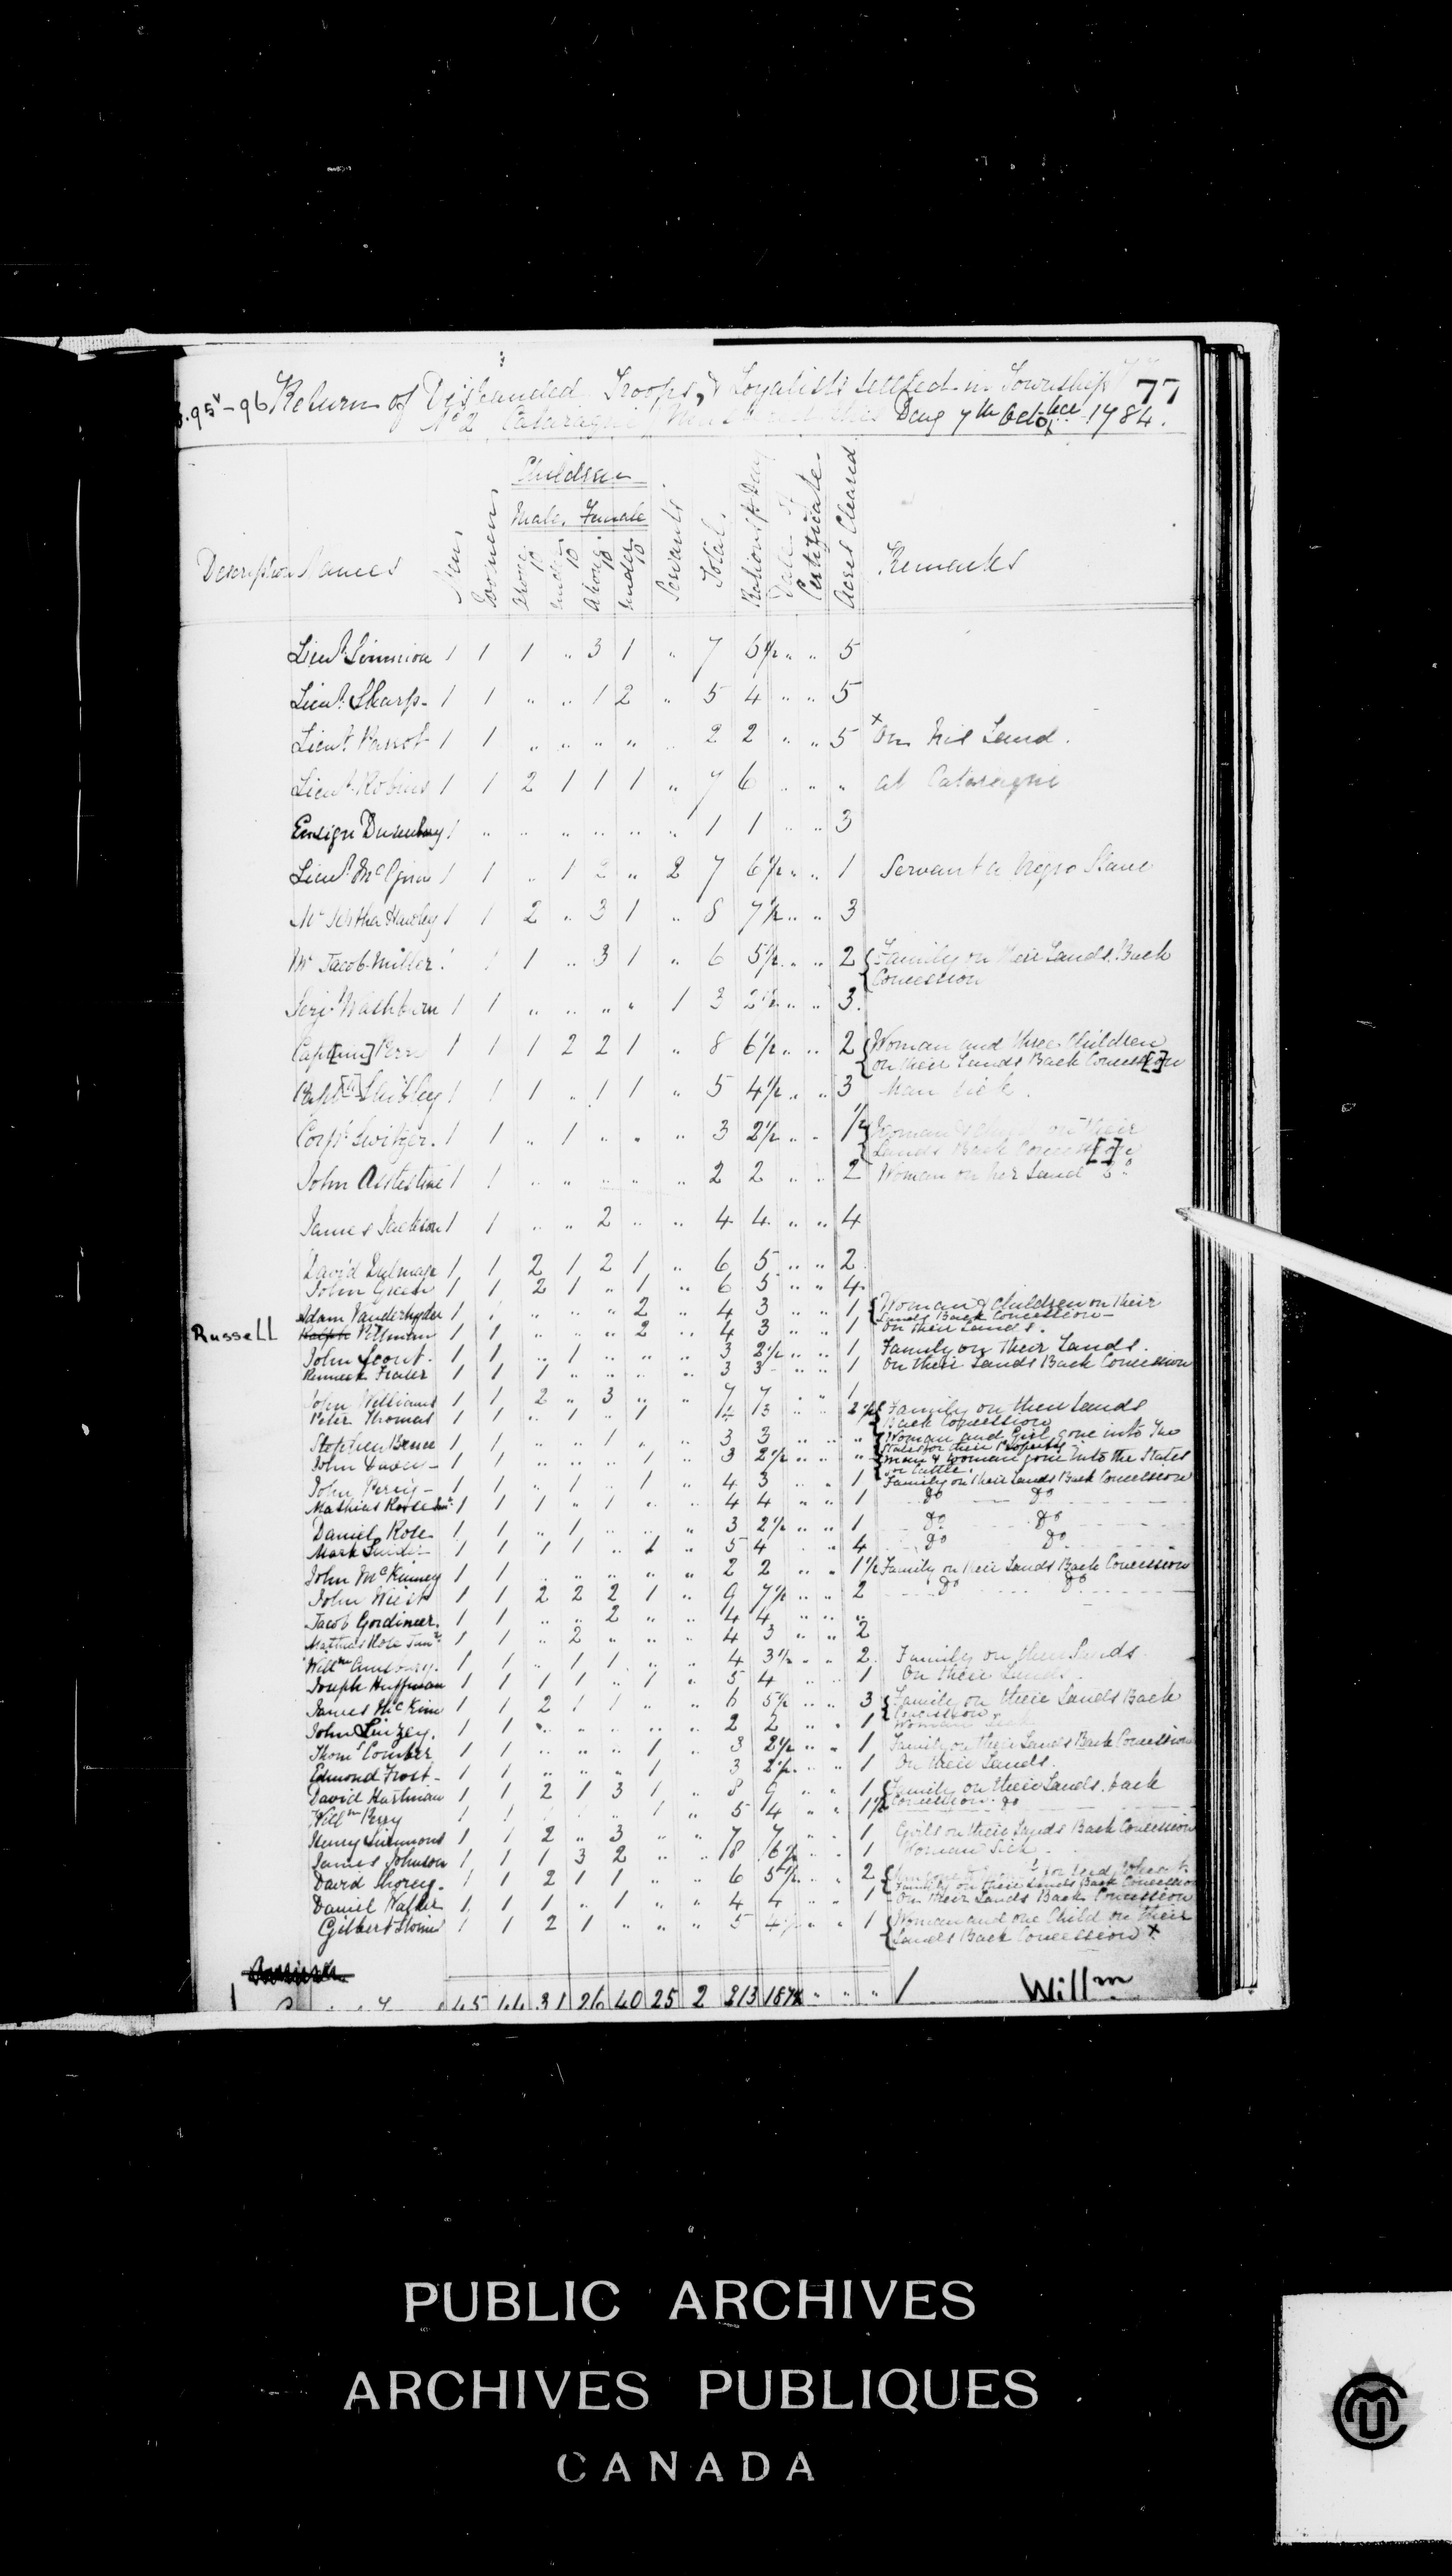 B.95v-96 Return of Disbanded Troops, & Loyalists settled in Township 77
No 2 Cataraqui Mustered this Day 7th October 1784.
Children
Male. Female
Description Names Men Women above 10 under 10 above 10 under 10 Servants Total Rations pr Day Date of Certificate Acres Cleared Remarks
Lieut. Simmion 1 1 1 .. 3 1 .. 7 5½ .. .. 5
Lieut. Sharp- 1 1 .. .. 1 2 .. 5 4 .. .. 5
Lieut Parrot 1 1 .. .. .. .. 2 2 .. .. 5 x On his Land.
Lieut. Robins 1 1 2 1 1 1 .. 7 6 .. .. .. at Cataraqui
Ensign Dusenbury 1 .. .. .. .. .. .. 1 1 .. .. 3
Lieut. McGinn 1 1 .. 1 2 .. 2 7 6½ .. .. 1 Servant a Negro Slave
Mr Jeptha Hawley 1 1 2 .. 3 1 .. 8 7½ .. .. 3
Mr Jacob Miller. 1 1 .. 3 1 .. 6 5½ .. .. 2 { Family on their Lands. Back
Concession
Serjt Washburn 1 1 .. .. .. .. 1 3 2½ .. .. 3.
Capt[ain] Perr 1 1 1 2 2 1 .. 8 6½ .. .. 2 { Woman and three Children
on their Lands Back Concess[io]n
Shibley 1 1 1 .. 1 1 .. 5 4½ .. .. 3 Man sick.
Corpl Switzer. 1 1 .. 1 .. .. .. 3 2½ .. .. 1½ { Woman on their
Lands Back
John Alstestine 1 1 .. .. .. .. .. 2 2 .. .. 2 Woman on her Land Do
James Jackson 1 1 .. .. 2 .. .. 4 4 .. .. 4
David Dulmage 1 1 2 1 2 1 .. 6 5 .. .. 2
John Green 1 1 2 1 .. 1 .. 6 5 .. .. 4
Adam Vanderhyder 1 1 .. .. .. 2 .. 4 3 .. .. 1 { Woman & Children on their
Lands Back Concession-
Russell Ralph Pitman 1 1 .. .. .. 2 .. 4 3 .. .. 1 On their Lands.
John Scout. 1 1 .. 1 .. .. .. 3 2½ .. .. 1 Family on their Lands.
Kenneck Frater 1 1 1 .. .. .. .. 3 3 .. .. 1 On their Lands Back Concession
John Williams 1 1 2 .. 3 .. .. 7 7 .. .. 1
Peter Thomas 1 1 .. 1 .. 1 4 3 .. .. 2½ { Family on their Lands
Back Concession
Stephen Bruce 1 1 .. .. 1 .. .. 3 3 .. .. .. { Woman and Girl gone into the
States for their Property
John 1 1 .. .. .. 1 .. 3 2½ .. .. .. { Man & Woman gone into the States
for Cattle.
John Percy- 1 1 .. 1 .. 1 .. 4 3 .. .. 1 Family on their Lands Back Concession
Mathias Rose Senr 1 1 1 .. 1 .. .. 4 4 .. .. 1 do do
Daniel Rose. 1 1 .. 1 .. .. .. 3 2½ .. .. 1 do do
Mark Snider 1 1 1 1 .. 1 .. 5 4 .. .. 4 do do
John McKinney 1 1 .. .. .. .. .. 2 2 .. .. 1½ Family on their Lands Back Concession
John Wiest 1 1 2 2 2 1 .. 9 7½ .. .. 2 do do
Jacob Gordineer. 1 1 .. .. 2 .. .. 4 4 .. .. ..
Mathias Rose Junr 1 1 .. 2 .. .. .. 4 3 .. .. 2
Willm 1 1 .. 1 1 .. .. 4 3½ .. .. 2. Family on their Lands
Joseph Huffman 1 1 1 1 .. 1 .. 5 4 .. .. 1 On their Lands
James McKim 1 1 2 1 1 .. .. 6 5½ .. .. 3 { Family on their Lands Back
Concession
John Linzey. 1 1 .. .. .. .. .. 2 2 .. .. 1 Woman Sick
Thoms Comber 1 1 .. .. .. 1 .. 3 2½ .. .. 1 Family on their Lands Back Concession
Edmond Frost- 1 1 .. .. .. 1 3 2½ .. .. 1 On their Lands.
David Hartman 1 1 2 1 3 1 .. 9 .. .. 1 { Family on their Lands. back
Concession.
Willm Perry 1 1 .. 1 .. 5 4 .. .. 1½ do
Henry Simmons 1 1 2 .. 3 .. .. 7 7 .. .. 1 Girls on their Lands Back Concession
James Johnson 1 1 1 3 2 .. .. 8 6½ .. .. 1 Woman Sick
David Shorey. 1 1 2 1 1 .. .. 6 5½ .. .. 2 { for seed Wheat
Family on their Lands Back Concession
Daniel Walker 1 1 1 .. 1 .. .. 4 4 .. .. 1 On their Lands Back Concession
Gilbert Storms 1 1 2 1 .. .. .. 5 4½ .. .. 1 { Woman and one Child on their
Lands Back Concession x
45 44 31 26 40 25 2 213 187½ .. .. .. / Willm
PUBLIC ARCHIVES
ARCHIVES PUBLIQUES
CANADA